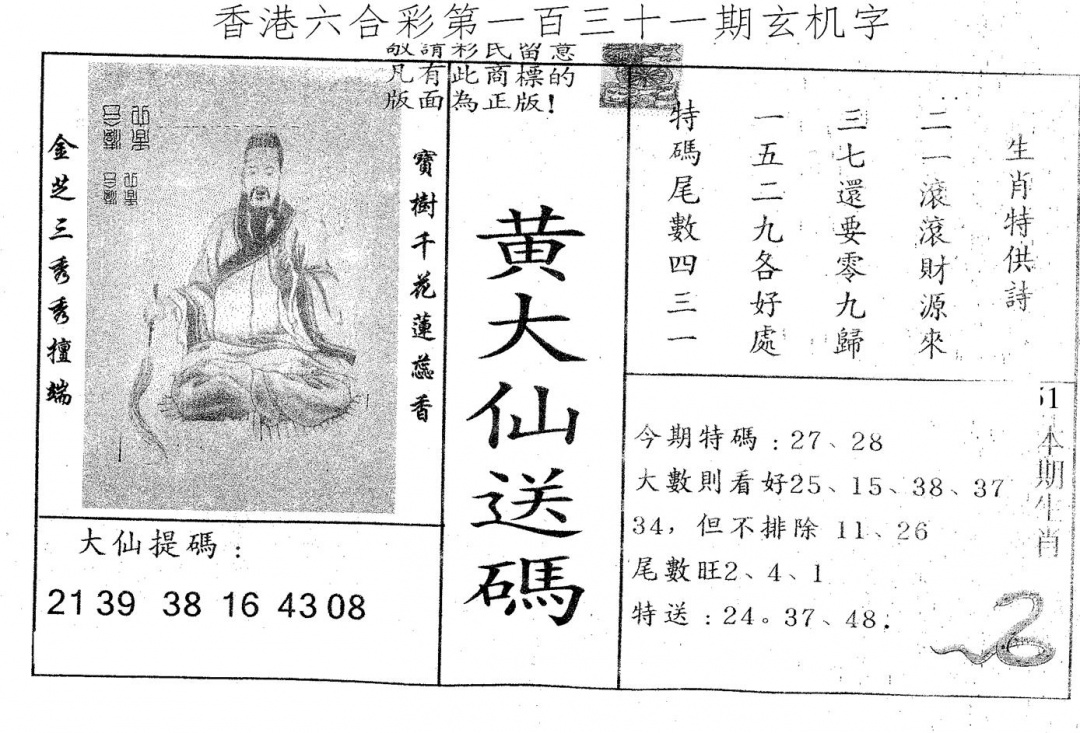 香港六合彩第一百三十一期玄机字
敬請彩民留意
凡有此商標的
版面為正版!
金芝三秀秀擅端
寶樹千花蓮蕊香
黄大仙送碼
生肖特供詩
二一滾滾財源來
三七還要零九歸
一五二九各好處
特碼尾數四三一
大仙提碼:
21 39 38 16 43 08
今期特碼:27、28
大數則看好25、15、38、37
34，但不排除 11、26
尾數旺2、4、1
特送:24。37、48.
51
本期生肖